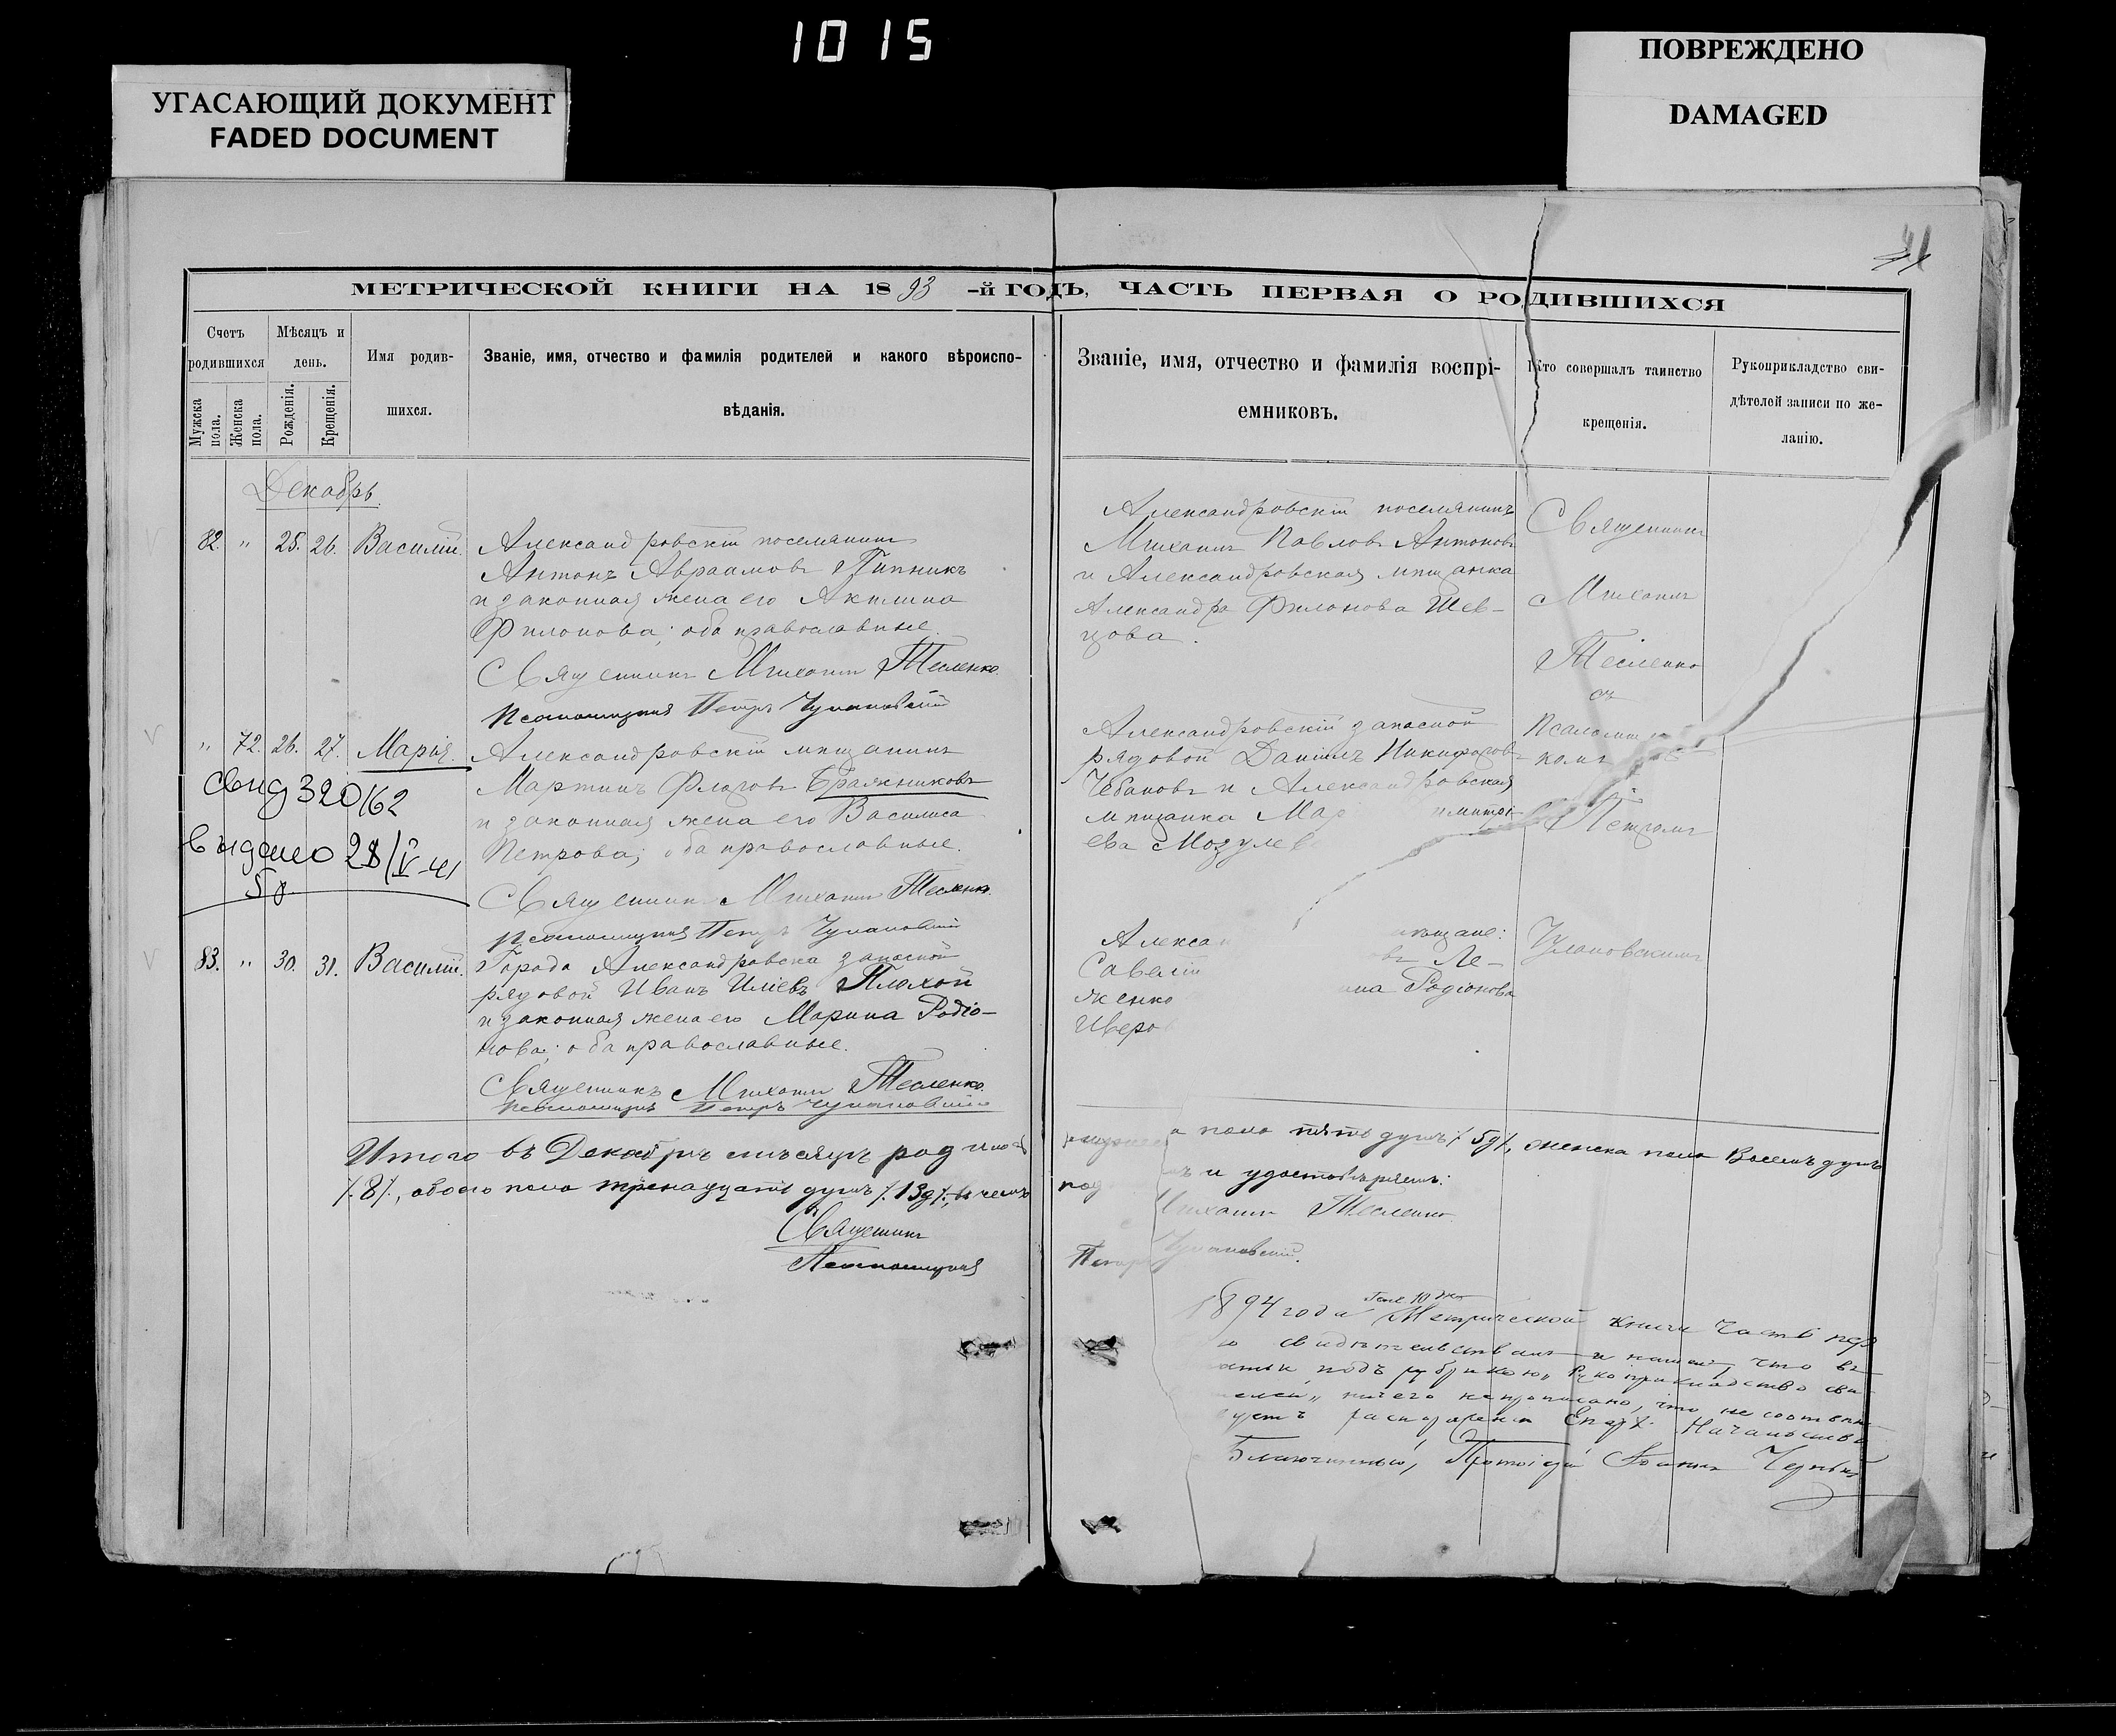 1015
УГАСАЮЩИЙ ДОКУМЕНТ
FADED DOCUMENT
ПОВРЕЖДЕНО
DAMAGED
МЕТРИЧЕСКОЙ КНИГИ НА 1893-й ГОДЪ, ЧАСТЬ ПЕРВАЯ О РОДИВШИХСЯ
Счетъ родившихся
Мужска пола.
Женска пола.
Мѣсяцъ и день.
Рожденія.
Крещенія.
Имя родив-
шихся.
Званіе, имя, отчество и фамилія родителей и какого вѣроиспо-
вѣданія.
Званіе, имя, отчество и фамилія воспрі-
емниковъ.
Кто совершалъ таинство
крещенія.
Рукоприкладство сви-
дѣтелей записи по же-
ланію.
Декабрь.
82. " 25. 26. Василій.
Александровскій поселянинъ
Антонъ Авраамовъ Пипникъ
и законная жена его Акилина
Филонова; оба православные.
Священникъ Михаилъ Тесленко.
Псаломщикъ Петръ Чулановскій
Александровскій поселянинъ
Михаилъ Павловъ Антоновъ
и Александровская мѣщанка
Александра Филонова Шев-
цова.
Священникъ
Михаилъ
Тесленко
съ
" 72. 26. 27. Марія.
Александровскій мѣщанинъ
Мартинъ Флоровъ Бражниковъ
и законная жена его Василиса
Петрова; оба православные.
Священникъ Михаилъ Тесленко.
Псаломщикъ Петръ Чулановскій
320/62
выдано 28/V-41
Александровскій запасной
рядовой Даніилъ Никифоровъ
Чебановъ и Александровская
мѣщанка Мар димитрі-
ева Мозулев
Псаломщи
комъ
Петромъ
83. " 30. 31. Василій.
Города Александровска запасной
рядовой Иванъ Иліевъ Плохой
и законная жена его Марина Родіо-
нова; оба православные.
Священникъ Михаилъ Тесленко.
Псаломщикъ Петръ Чулановскій
Алексан мѣщане:
Савелій въ Ле-
женко на Родіонова
Иверов
Чулановскимъ
Итого въ Декабрѣ мѣсяцѣ род
а пола пять душъ /.5д/., женска пола восемь душъ
/.8/., обоего пола тринадцать душъ /.13д/., въ чемъ
под ъ и удостовѣряемъ:
Священникъ Михаилъ Тесленко.
Псаломщикъ Петръ Чулановскій.
1894 года 10 Метрической книги часть пер
о свидѣтельствалъ и нашелъ, что въ
подъ рубрикою „Рукоприкладство сви
" ничего непрописано, что не соотвѣт
Епарх. Начальства
Благочинный, Протоіерей Іоаннъ